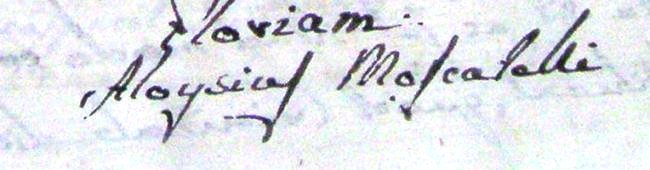 Gloriam.
Aloysius Moscatelli